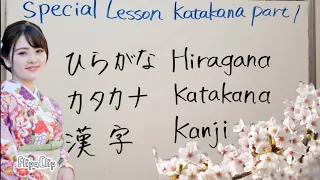 Special Lesson Katakana part 1
ひらがな Hiragana
カタカナ Katakana
漢字 Kanji
FlipaClip